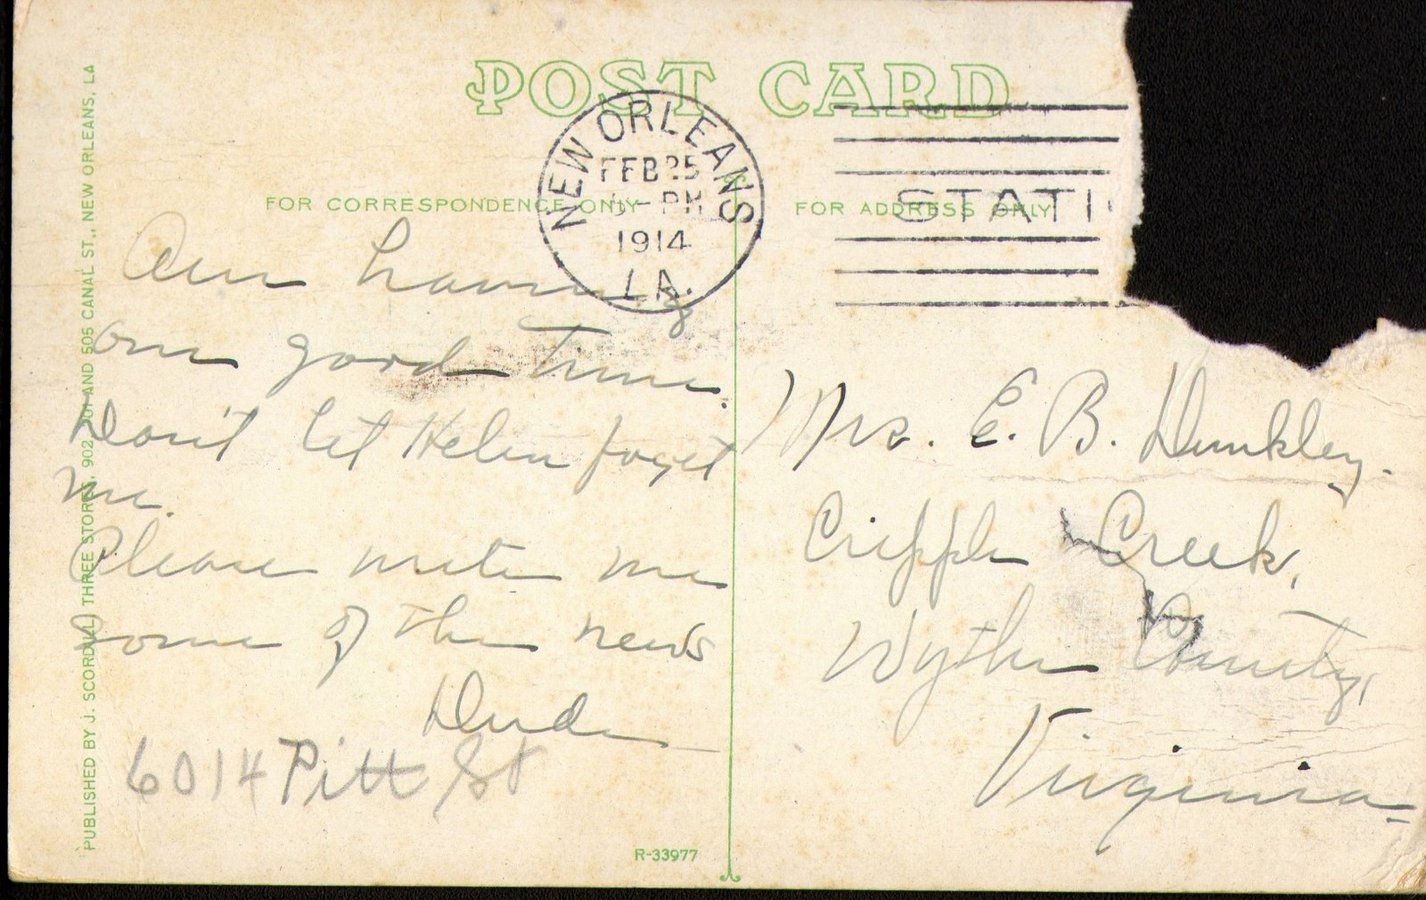 POST CARD
NEW ORLEANS
FEB 25
PM
1914
LA.
STATI
FOR CORRESPONDENCE ONLY
FOR ADDRESS ONLY
Am having
one good time.
Don't let Helen forget
me.
Please write me
some of the news
6014 Pitt St
Mrs. E. B. Dunkley.
Cripple Creek,
Wythe County,
Virginia
R-33977
PUBLISHED BY J. SCORDILL, THREE STORES, 902, 701 AND 505 CANAL ST., NEW ORLEANS, LA